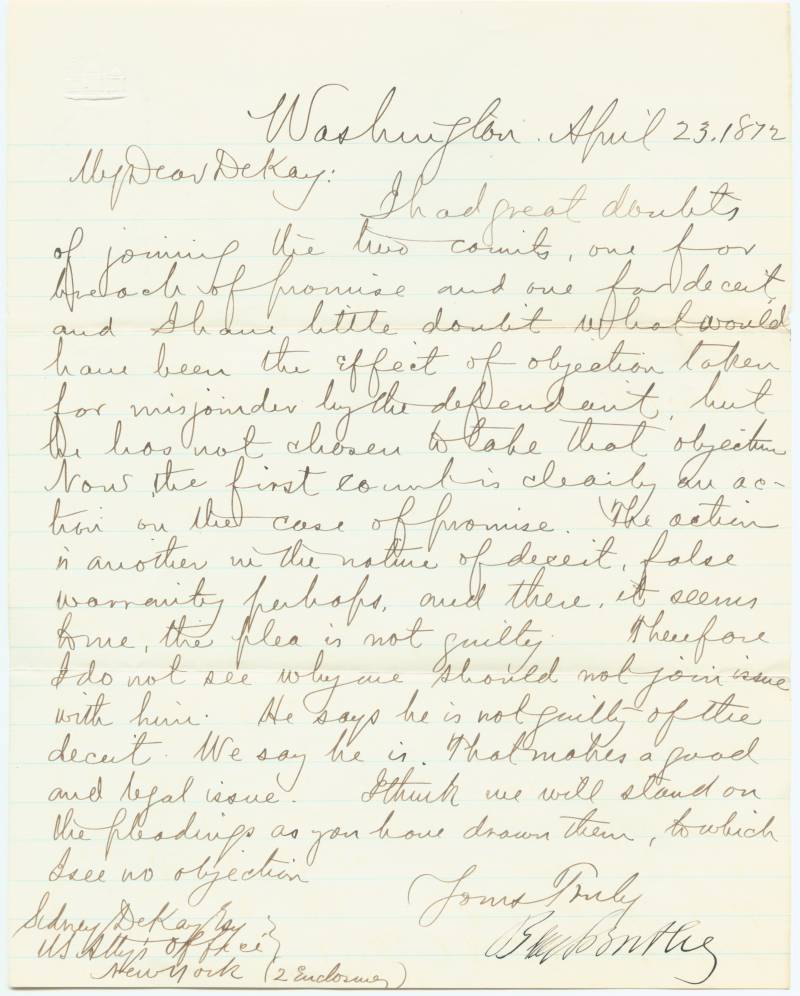 Washington. April 23. 1872
My Dear DeKay:
I had great doubts
of joining the two counts, one for
breach of promise and one for deceit,
and I have little doubt what would
have been the effect of objection taken
for misjoinder by the defendant, but
he has not chosen to take that objection
Now, the first count is clearly an ac-
tion on the case of promise. The action
is another in the nature of deceit, false
warranty perhaps, and there, it seems
to me, the plea is not guilty. Therefore
I do not see why we should not join issue
with him. He says he is not guilty of the
deceit. We say he is. That makes a good
and legal issue. I think we will stand on
the pleadings as you have drawn them, to which
I see no objection
Yours Truly
Benj F Butler
Sidney DeKay Esq
US Atty's Office
New York (2 Enclosures)